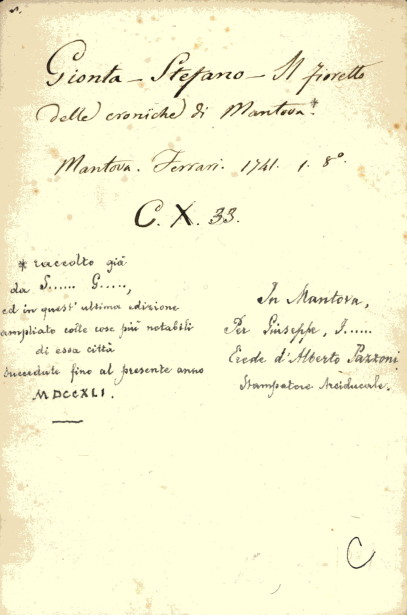 Gionta - Stefano - Il fioretto
delle croniche di Mantova*
Mantova. Ferrari. 1741. 1. 8º.
C. X. 33.
* raccolto già
da S...... G.....,
ed in quest' ultima edizione
ampliato colle cose più notabili
di essa città
succedute fino al presente anno
MDCCXLI.
In Mantova,
Per Giuseppe, I......
Erede d'Alberto Pazzoni
Stampatore Arciducale.
C